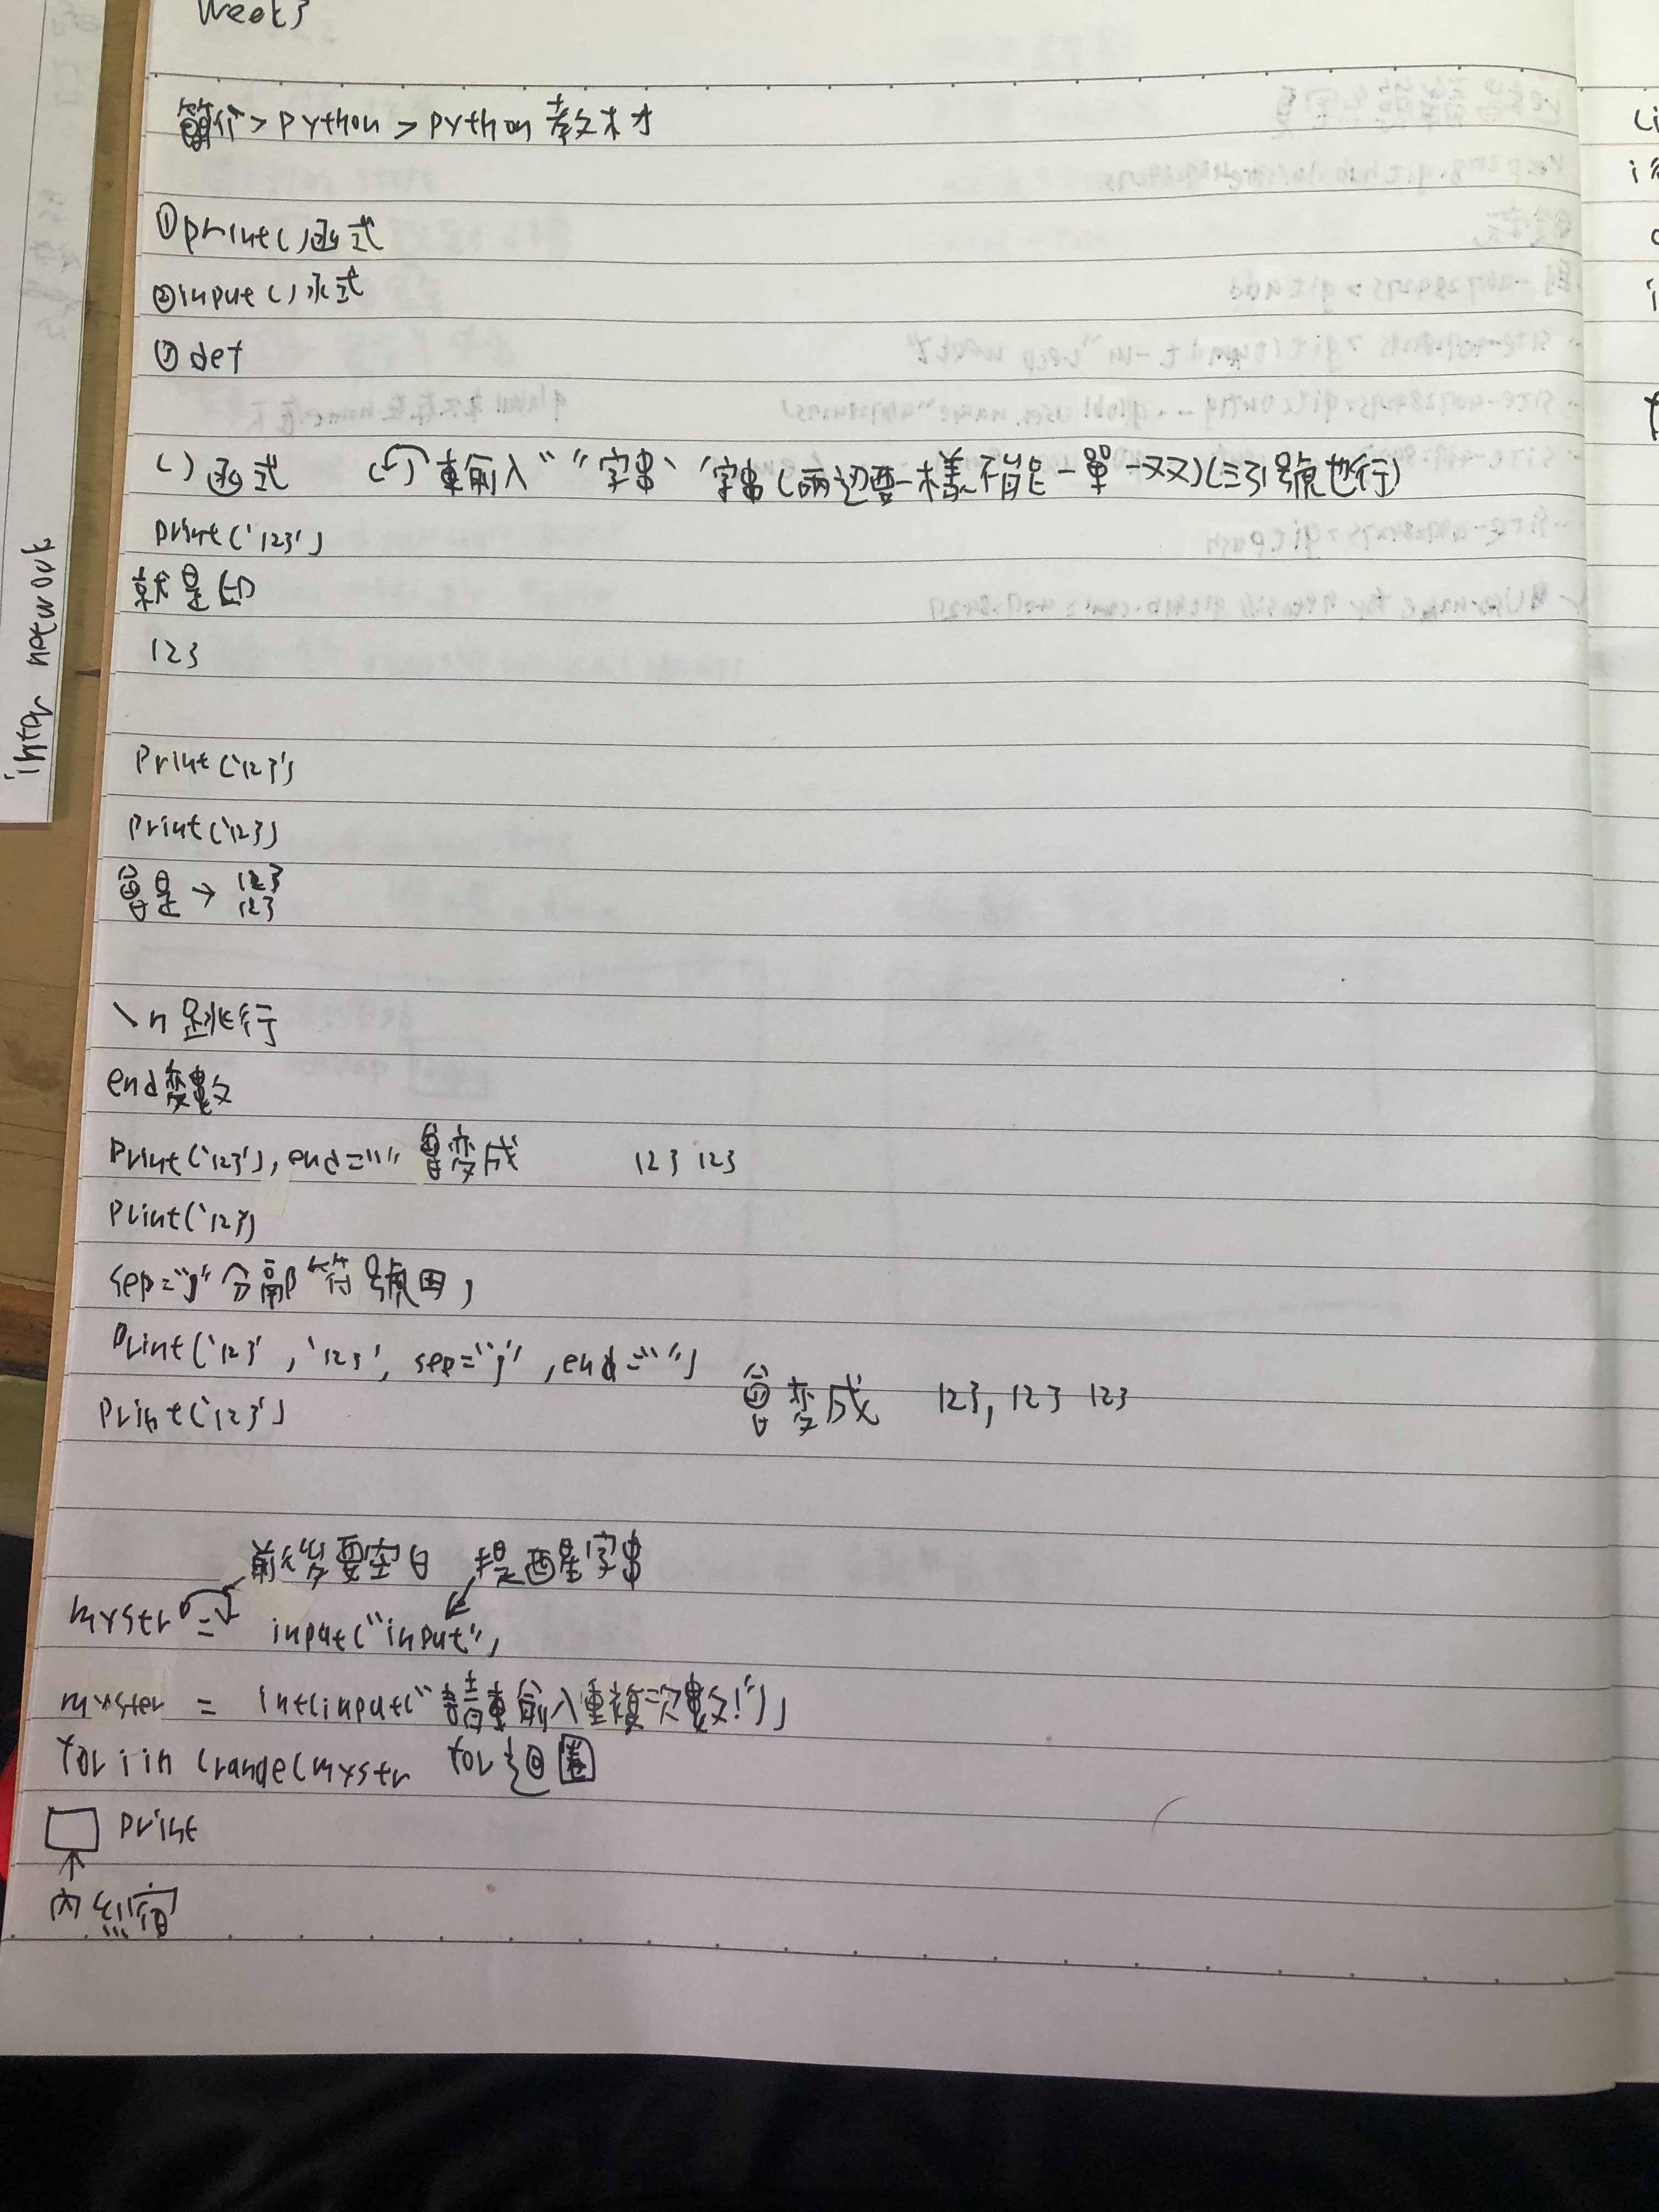 Week3
簡介>python>python教材
①print()函式
②input()函式
③def
()函式 ()輸入“ ”字串、'字串(兩边要一樣不能一單一双)(三引號也行)
print('123')
就是印
123
Print('123')
Print('123)
會是→ 123
123
\n 跳行
end变數
Print('123'),end="" 會变成 123 123
Print('123)
sep="," 分隔符號用,
Print('123','123', sep=",",end="")
會变成 123,123 123
Print('123')
前後要空白 提醒字串
mystr = input("input")
myster = int(input("請輸入重複次數!"))
for i in (range(mystr for 迴圈
print
內縮
inter network